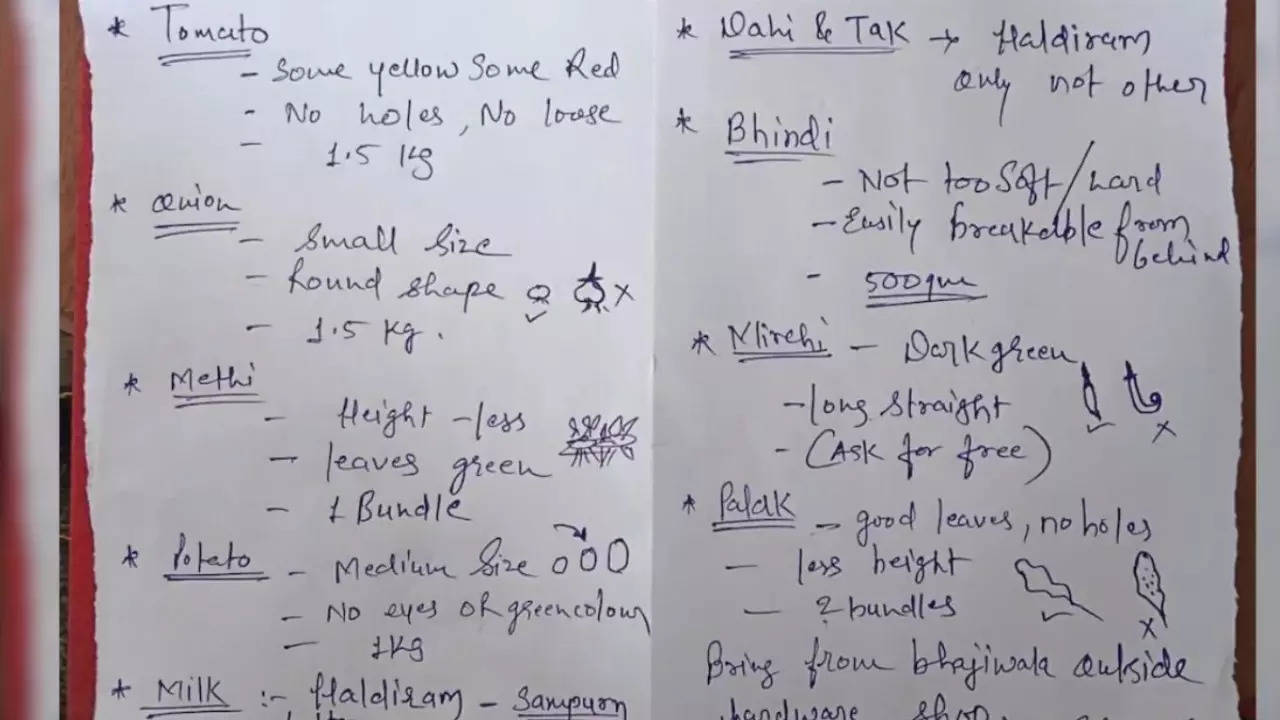 * Tomato
- Some yellow Some Red
- No holes, No loose
- 1.5 Kg
* onion
- Small Size
- Round shape
- 1.5 Kg.
* Methi
- Height - less
- leaves green
- 1 Bundle
* Potato - Medium Size
- No eyes or green colour
- 1 Kg
* Milk :- Haldiram - Sampurn
* Dahi & Tak → Haldiram
only not other
* Bhindi
- Not too Soft/hard
- Easily breakable from
behind
- 500gm
* Mirchi - Dark green
- long straight
- (Ask for free)
* Palak - good leaves, no holes
- less height
- 2 bundles
Bring from bhajiwala outside
hardware shop